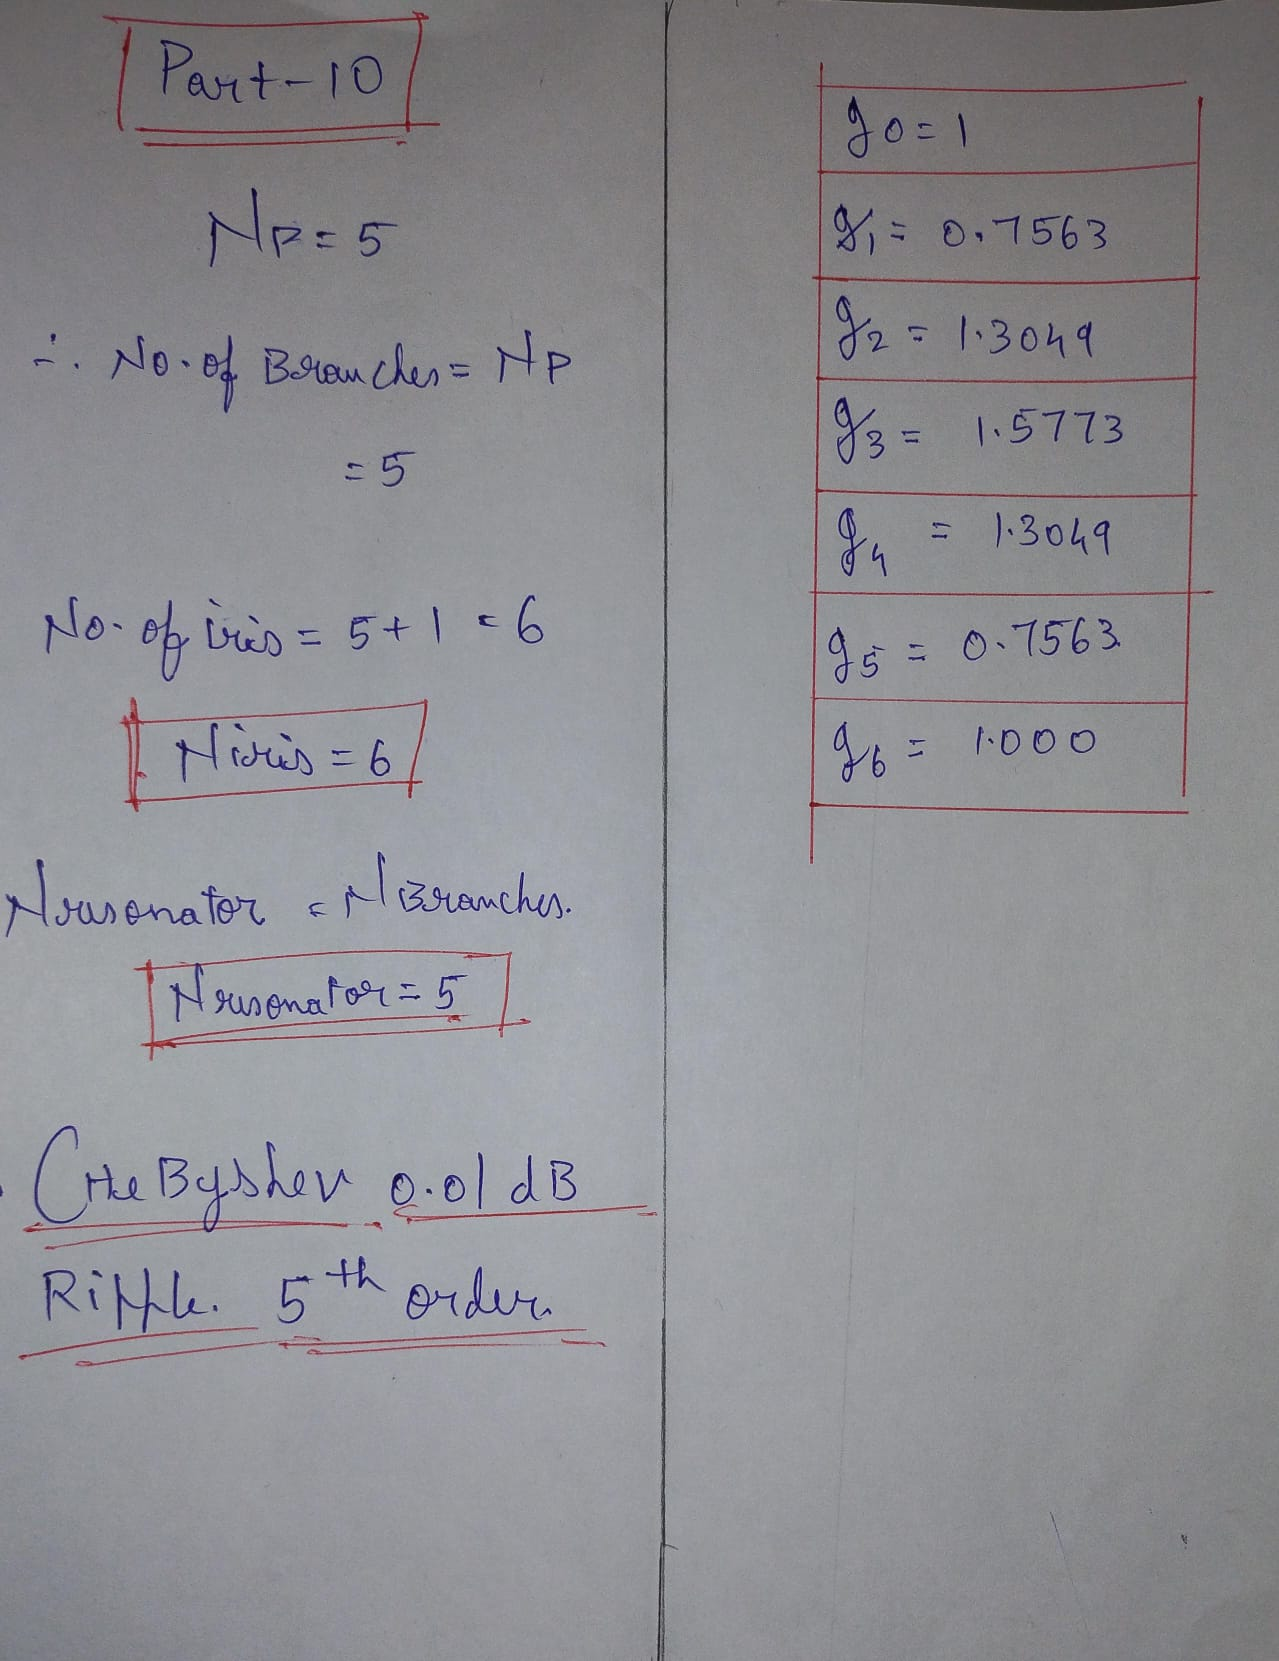 Part-10
Np = 5
∴ No. of Branches = Np
= 5
No. of iris = 5 + 1 = 6
Niris = 6
Nresonator = NBranches.
Nresonator = 5
CheByshev 0.01 dB
Ripple. 5th order.
g0 = 1
g1 = 0.7563
g2 = 1.3049
g3 = 1.5773
g4 = 1.3049
g5 = 0.7563
g6 = 1.000